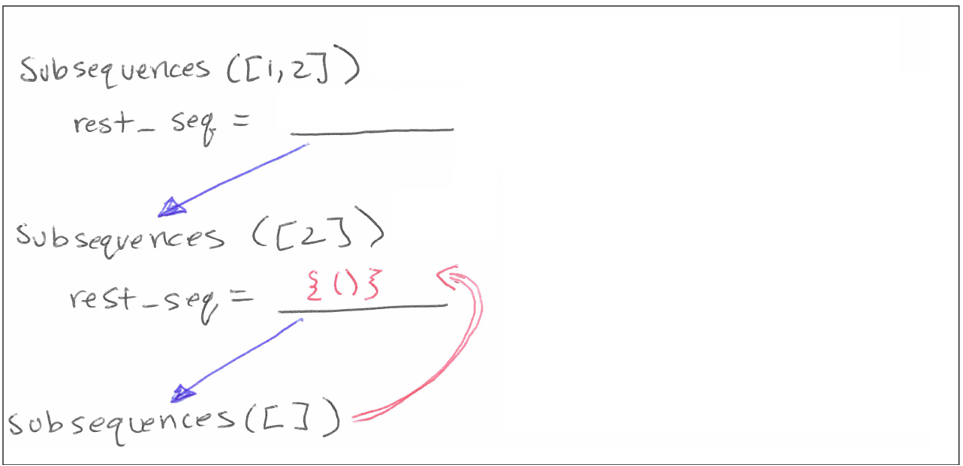 Subsequences ([1,2])
rest_seq = ______
Subsequences ([2])
rest_seq = {()}
subsequences([])